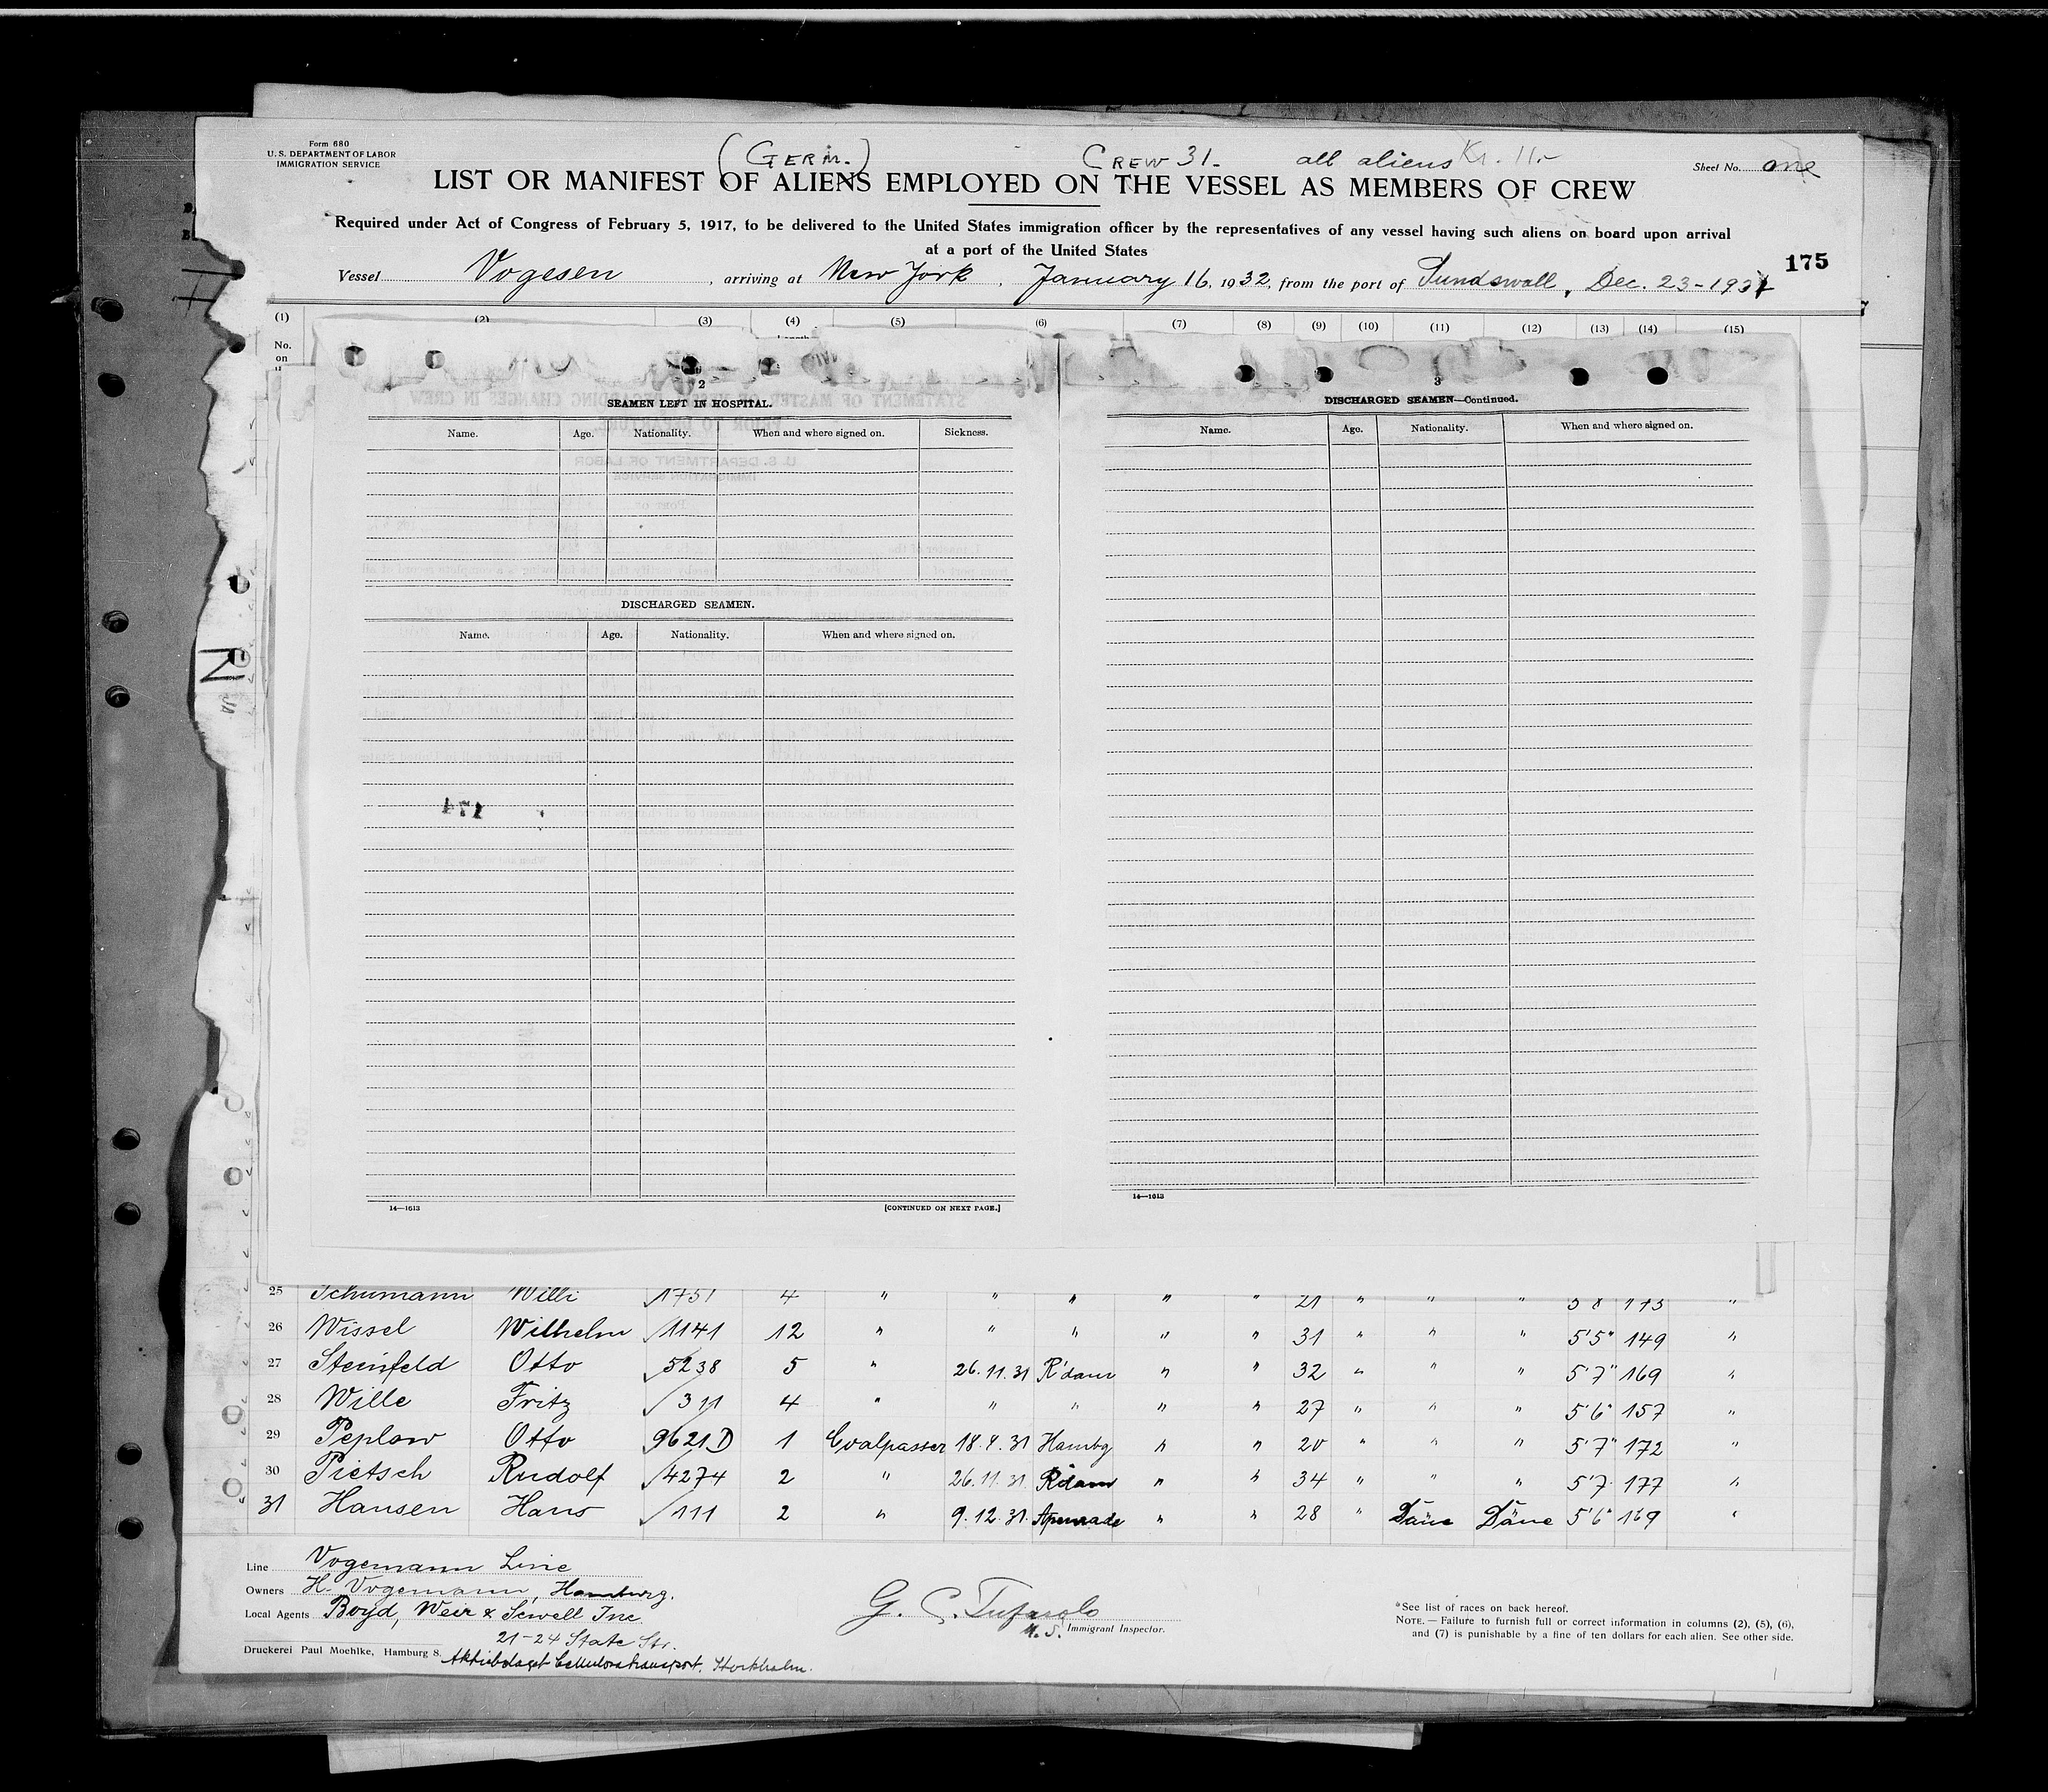 Form 680
U. S. DEPARTMENT OF LABOR
IMMIGRATION SERVICE
(GERM.) CREW 31. all aliens
Sheet No. one
LIST OR MANIFEST OF ALIENS EMPLOYED ON THE VESSEL AS MEMBERS OF CREW
Required under Act of Congress of February 5, 1917, to be delivered to the United States immigration officer by the representatives of any vessel having such aliens on board upon arrival
at a port of the United States
175
Vessel Vogesen, arriving at New York, January 16, 1932, from the port of Sundswall, Dec. 23-1931
(1) (2) (3) (4) (5) (6) (7) (8) (9) (10) (11) (12) (13) (14) (15)
No.
on
2
SEAMEN LEFT IN HOSPITAL.
Name. Age. Nationality. When and where signed on. Sickness.
DISCHARGED SEAMEN.
Name. Age. Nationality. When and where signed on.
174
14—1613 [CONTINUED ON NEXT PAGE.]
3
DISCHARGED SEAMEN—Continued.
Name. Age. Nationality. When and where signed on.
14—1613
25 Schumann Willi 1751 4 " " " " " 21 " " " 5 8 173 "
26 Wissel Wilhelm 1141 12 " " " " " 31 " " " 5'5" 149 "
27 Steinfeld Otto 5238 5 " 26.11.31 R'dam " " 32 " " " 5'7" 169 "
28 Wille Fritz 311 4 " " " " " 27 " " " 5'6" 157 "
29 Peplow Otto 9621D 1 Coalpasser 18.4.31 Hambg " " 20 " " " 5'7" 172 "
30 Pietsch Rudolf 4274 2 " 26.11.31 R'dam " " 34 " " " 5'7 177 "
31 Hansen Hans 111 2 " 9.12.31 Apenrade " " 28 " Däne Däne 5'6" 169 "
Line Vogemann Line
Owners H. Vogemann, Hamburg.
Local Agents Boyd, Weir & Sewell Inc
21-24 State Str.
Druckerei Paul Moehlke, Hamburg 8. Aktiebolaget Cellulosatransport, Stockholm.
G. C.
Immigrant Inspector.
*See list of races on back hereof.
NOTE. — Failure to furnish full or correct information in columns (2), (5), (6),
and (7) is punishable by a fine of ten dollars for each alien. See other side.